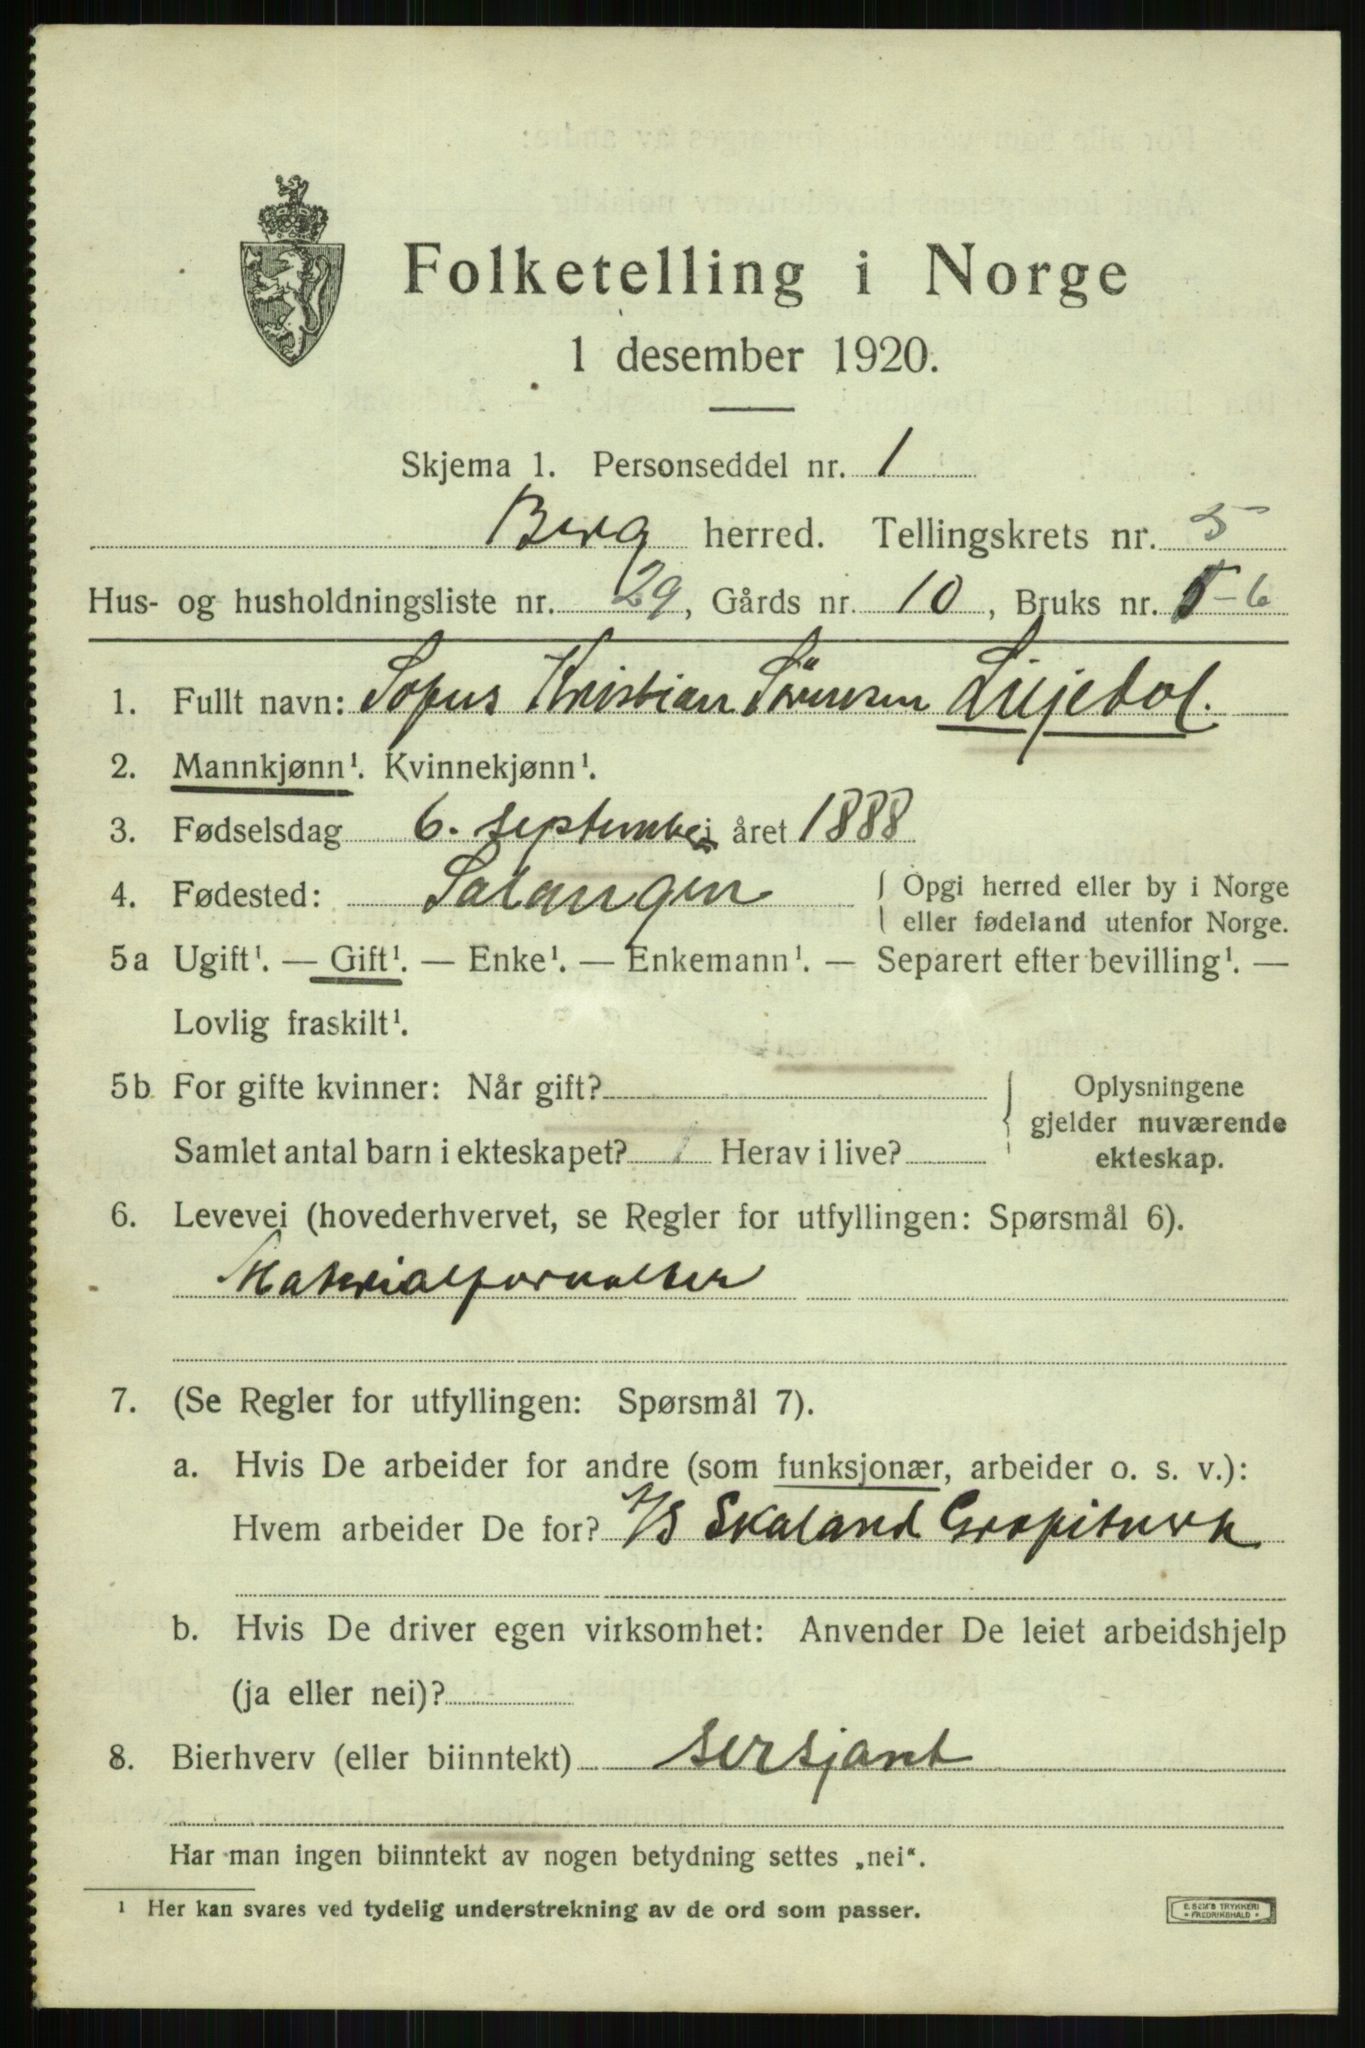 Folketelling i Norge
1 desember 1920.
Skjema 1. Personseddel nr. 1
Berg herred. Tellingskrets nr. 5
Hus- og husholdningsliste nr. 29, Gårds nr. 10, Bruks nr. 5-6
1. Fullt navn: Sofus Kristian Sörensen Liljedal.
2. Mannkjønn¹. Kvinnekjønn¹.
3. Fødselsdag 6. september året 1888
4. Fødested: Salangen { Opgi herred eller by i Norge
eller fødeland utenfor Norge.
5a Ugift¹. — Gift¹. — Enke¹. — Enkemann¹. — Separert efter bevilling¹. —
Lovlig fraskilt¹.
5b For gifte kvinner: Når gift? { Oplysningene
gjelder nuværende
Samlet antal barn i ekteskapet? 1 Herav i live? ekteskap.
6. Levevei (hovederhvervet, se Regler for utfyllingen: Spørsmål 6).
Materialforvalter
7. (Se Regler for utfyllingen: Spørsmål 7).
a. Hvis De arbeider for andre (som funksjonær, arbeider o. s. v.):
Hvem arbeider De for? A/S Skaland Grafitverk
b. Hvis De driver egen virksomhet: Anvender De leiet arbeidshjelp
(ja eller nei)?
8. Bierhverv (eller biinntekt) sersjant
Har man ingen biinntekt av nogen betydning settes „nei“.
¹ Her kan svares ved tydelig understrekning av de ord som passer.
E. SEM'S TRYKKERI
• FREDRIKSHALD •